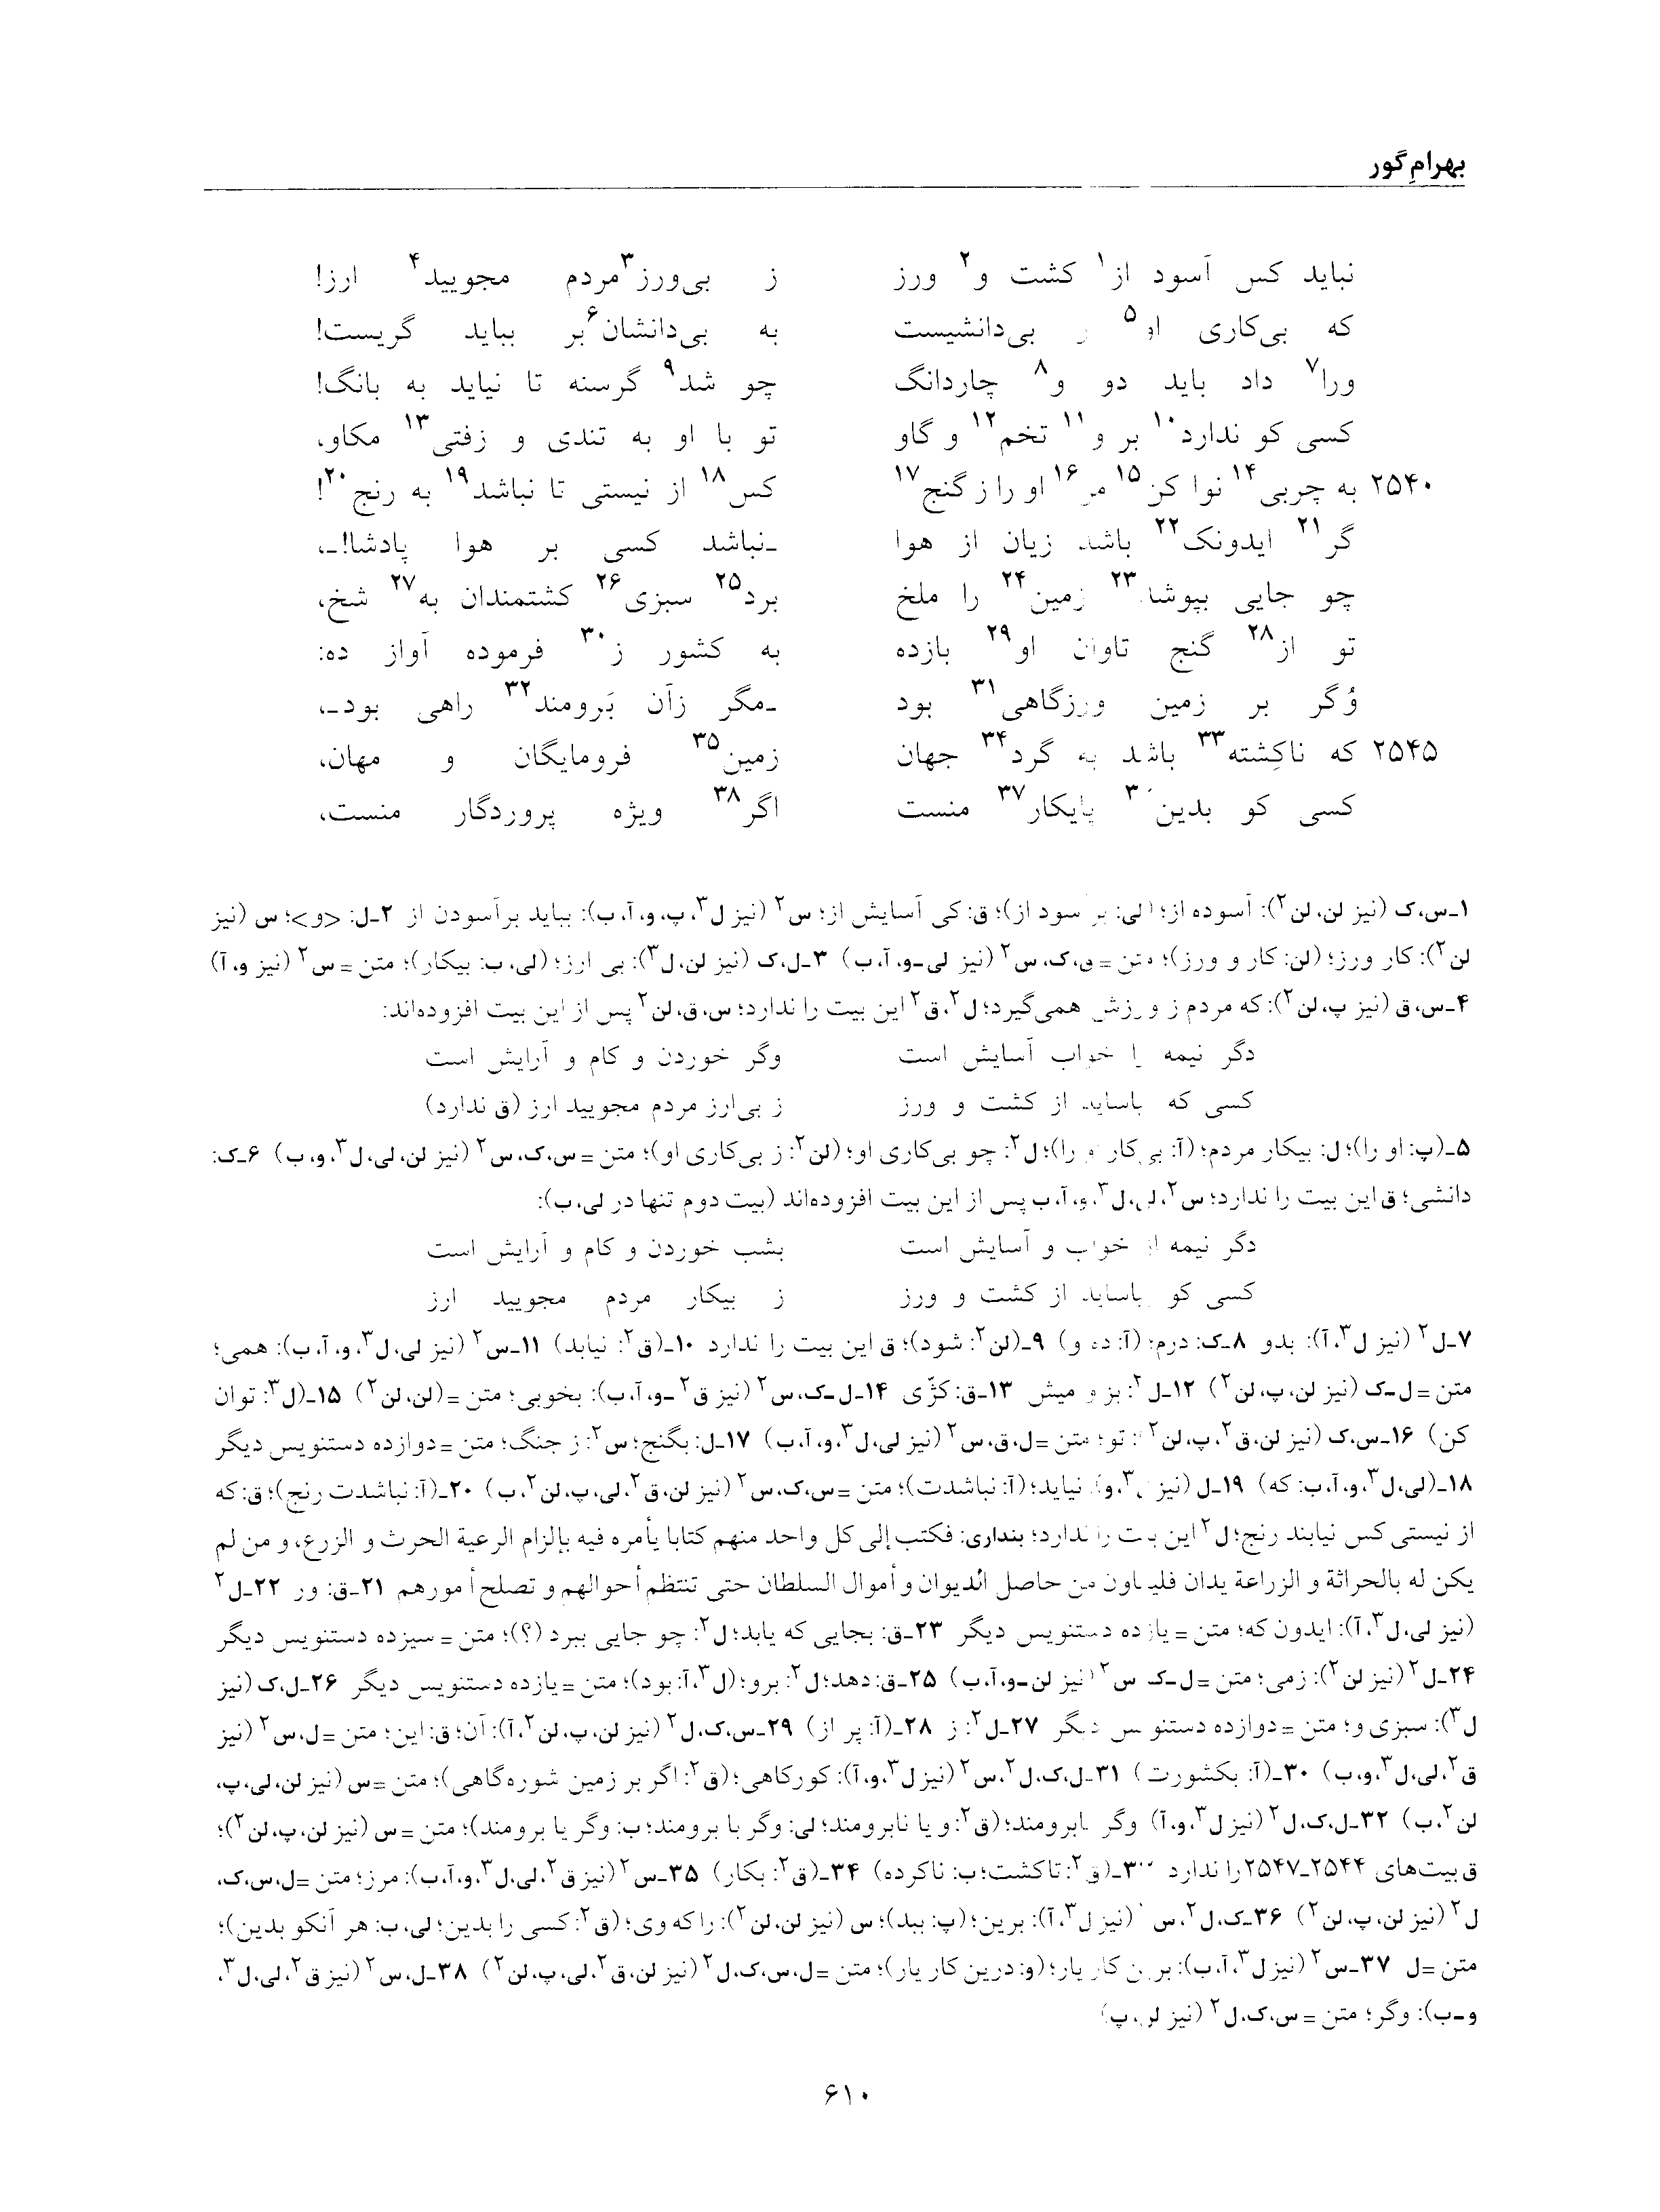 بهرامِ گور
نباید کس آسود از¹ کشت و² ورز ز بی‌ورز³ مردم مجویید⁴ ارز!
که بی‌کاری او⁵ ز بی‌دانشیست به بی‌دانشان⁶ بر بباید گریست!
ورا⁷ داد باید دو و⁸ چاردانگ چو شد⁹ گرسنه تا نیاید به بانگ!
کسی کو ندارد¹⁰ بر و¹¹ تخم¹² و گاو تو با او به تندی و زفتی¹³ مکاو،
۲۵۴۰ به چربی¹⁴ نوا کن¹⁵ مر¹⁶ او را ز گنج¹⁷ کس¹⁸ از نیستی تا نباشد¹⁹ به رنج²⁰!
گر²¹ ایدونک²² باشد زیان از هوا ـنباشد کسی بر هوا پادشا!ـ،
چو جایی بپوشد²³ زمین²⁴ را ملخ برد²⁵ سبزی²⁶ کشتمندان به²⁷ شخ،
تو از²⁸ گنج تاوان او²⁹ بازده به کشور ز³⁰ فرموده آواز ده:
وُگر بر زمین ورزگاهی³¹ بود ـمگر زآن بَرومند³² راهی بودـ،
۲۵۴۵ که ناکِشته³³ باشد به گرد³⁴ جهان زمین³⁵ فرومایگان و مهان،
کسی کو بدین پایکار³⁷ منست اگر³⁸ ویژه پروردگار منست،
۱ـ س، ک (نیز لن، لن²): آسوده از؛ (لی: بر سود از)؛ ق: کی آسایش از؛ س² (نیز ل³، پ، و، آ، ب): بباید برآسودن از ۲ـ ل: <و>؛ س (نیز
لن²): کار ورز؛ (لن: کار و ورز)؛ متن = ق، ک، س² (نیز لی ـ و، آ، ب) ۳ـ ل، ک (نیز لن، ل³): بی ارز؛ (لی، ب: بیکار)؛ متن = س² (نیز و، آ)
۴ـ س، ق (نیز پ، لن²): که مردم ز ورزش همی‌گیرد؛ ل²، ق² این بیت را ندارد؛ س، ق، لن² پس از این بیت افزوده‌اند:
دگر نیمه را خواب آسایش است وگر خوردن و کام و آرایش است
کسی که باساید از کشت و ورز ز بی‌ارز مردم مجویید ارز (ق ندارد)
۵ـ (پ: او را)؛ ل: بیکار مردم؛ (آ: بی‌کار و را)؛ ل²: چو بی‌کاری او؛ (لن²: ز بی‌کاری او)؛ متن = س، ک، س² (نیز لن، لی، ل³، و، ب) ۶ـ ک:
دانشی؛ ق این بیت را ندارد؛ س²، لی، ل³، و، آ، ب پس از این بیت افزوده‌اند (بیت دوم تنها در لی، ب):
دگر نیمه از خواب و آسایش است بشب خوردن و کام و آرایش است
کسی کو باساید از کشت و ورز ز بیکار مردم مجویید ارز
۷ـ ل² (نیز ل³، آ): بدو ۸ـ ک: درم؛ (آ: ده و) ۹ـ (لن²: شود)؛ ق این بیت را ندارد ۱۰ـ (ق²: نیابد) ۱۱ـ س² (نیز لی، ل³، و، آ، ب): همی؛
متن = ل ـ ک (نیز لن، پ، لن²) ۱۲ـ ل²: بز و میش ۱۳ـ ق: کژّی ۱۴ـ ل ـ ک، س² (نیز ق² ـ و، آ، ب): بخوبی؛ متن = (لن، لن²) ۱۵ـ (ل³: توان
کن) ۱۶ـ س، ک (نیز لن، ق²، پ، لن²): تو؛ متن = ل، ق، س² (نیز لی، ل³، و، آ، ب) ۱۷ـ ل: بگنج؛ س²: ز جنگ؛ متن = دوازده دستنویس دیگر
۱۸ـ (لی، ل³، و، آ، ب: که) ۱۹ـ ل (نیز ل³، و): نیاید؛ (آ: نباشدت)؛ متن = س، ک، س² (نیز لن، ق²، لی، پ، لن²، ب) ۲۰ـ (آ: نباشدت رنج)؛ ق: که
از نیستی کس نیابند رنج؛ ل² این بیت را ندارد؛ بنداری: فکتب إلی کل واحد منهم کتابا یأمره فیه بإلزام الرعیة الحرث و الزرع، و من لم
یکن له بالحراثة و الزراعة یدان فلیعاون من حاصل الدیوان و أموال السلطان حتی تنتظم أحوالهم و تصلح أمورهم ۲۱ـ ق: ور ۲۲ـ ل²
(نیز لی، ل³، آ): ایدون که؛ متن = یازده دستنویس دیگر ۲۳ـ ق: بجایی که یابد؛ ل²: چو جایی ببرد (؟)؛ متن = سیزده دستنویس دیگر
۲۴ـ ل² (نیز لن²): زمی؛ متن = ل ـ ک س² (نیز لن ـ و، آ، ب) ۲۵ـ ق: دهد؛ ل²: برو؛ (ل³، آ: بود)؛ متن = یازده دستنویس دیگر ۲۶ـ ل، ک (نیز
ل³): سبزی و؛ متن = دوازده دستنویس دیگر ۲۷ـ ل²: ز ۲۸ـ (آ: پر از) ۲۹ـ س، ک، ل² (نیز لن، پ، لن²، آ): آن؛ ق: این؛ متن = ل، س² (نیز
ق²، لی، ل³، و، ب) ۳۰ـ (آ: بکشورت) ۳۱ـ ل، ک، ل²، س² (نیز ل³، و، آ): کورکاهی؛ (ق²: اگر بر زمین شوره‌گاهی)؛ متن = س (نیز لن، لی، پ،
لن²، ب) ۳۲ـ ل، ک، ل² (نیز ل³، و، آ) وگر نابرومند؛ (ق²: و یا نابرومند؛ لی: وگر با برومند؛ ب: وگر یا برومند)؛ متن = س (نیز لن، پ، لن²)؛
ق بیت‌های ۲۵۴۴ـ۲۵۴۷ را ندارد ۳۳ـ (ق²: تاکشت؛ ب: ناکرده) ۳۴ـ (ق²: بکار) ۳۵ـ س² (نیز ق²، لی، ل³، و، آ، ب): مرز؛ متن = ل، س، ک،
ل² (نیز لن، پ، لن²) ۳۶ـ ک، ل²، س² (نیز ل³، آ): برین؛ (پ: ببد)؛ س (نیز لن، لن²): را که وی؛ (ق²: کسی را بدین؛ لی، ب: هر آنکو بدین)؛
متن = ل ۳۷ـ س² (نیز ل³، آ، ب): برین کار یار؛ (و: درین کار یار)؛ متن = ل، س، ک، ل² (نیز لن، ق²، لی، پ، لن²) ۳۸ـ ل، س² (نیز ق²، لی، ل³،
و ـ ب): وگر؛ متن = س، ک، ل² (نیز لن، پ)
۶۱۰